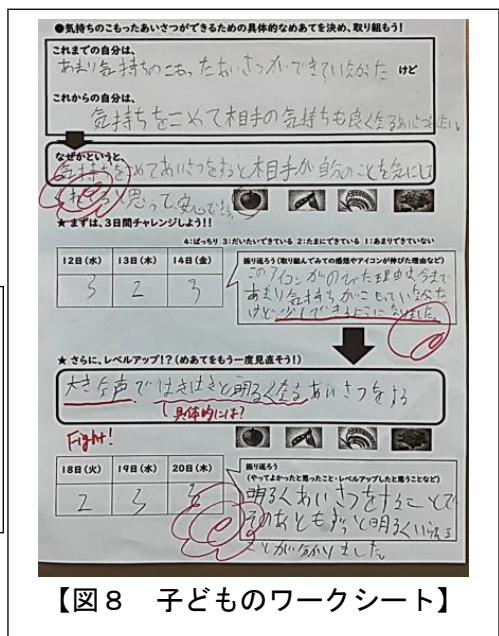 ●気持ちのこもったあいさつができるための具体的なめあてを決め、取り組もう！
これまでの自分は、
あまり気持ちのこもったあいさつができていなかった けど
これからの自分は、
気持ちをこめて相手の気持ちも良くなるあいさつをしたい。
なぜかというと、
気持ちをこめてあいさつをすると相手が自分のことを気にして
くれてると思って、安心できる。
★ まずは、3日間チャレンジしよう！！
4：ばっちり 3：だいたいできている 2：たまにできている 1：あまりできていない
12日（水） 13日（木） 14日（金）
3 2 3
振り返ろう（取り組んでみての感想やアイコンが伸びた理由など）
このアイコンがのびた理由は、今まで
あまり気持ちがこもっていなかった
けど少しできるようになりました。
★ さらに、レベルアップ！？（めあてをもう一度見直そう！）
大きな声ではきはきと明るくなるあいさつをする
具体的には？
Fight!
18日（火） 19日（水） 20日（木）
2 3
振り返ろう
（やってよかったと思ったこと・レベルアップしたと思うことなど）
明るくあいさつをすることで
そのあともずっと明るくいられる
ことが分かりました。
【図８ 子どものワークシート】